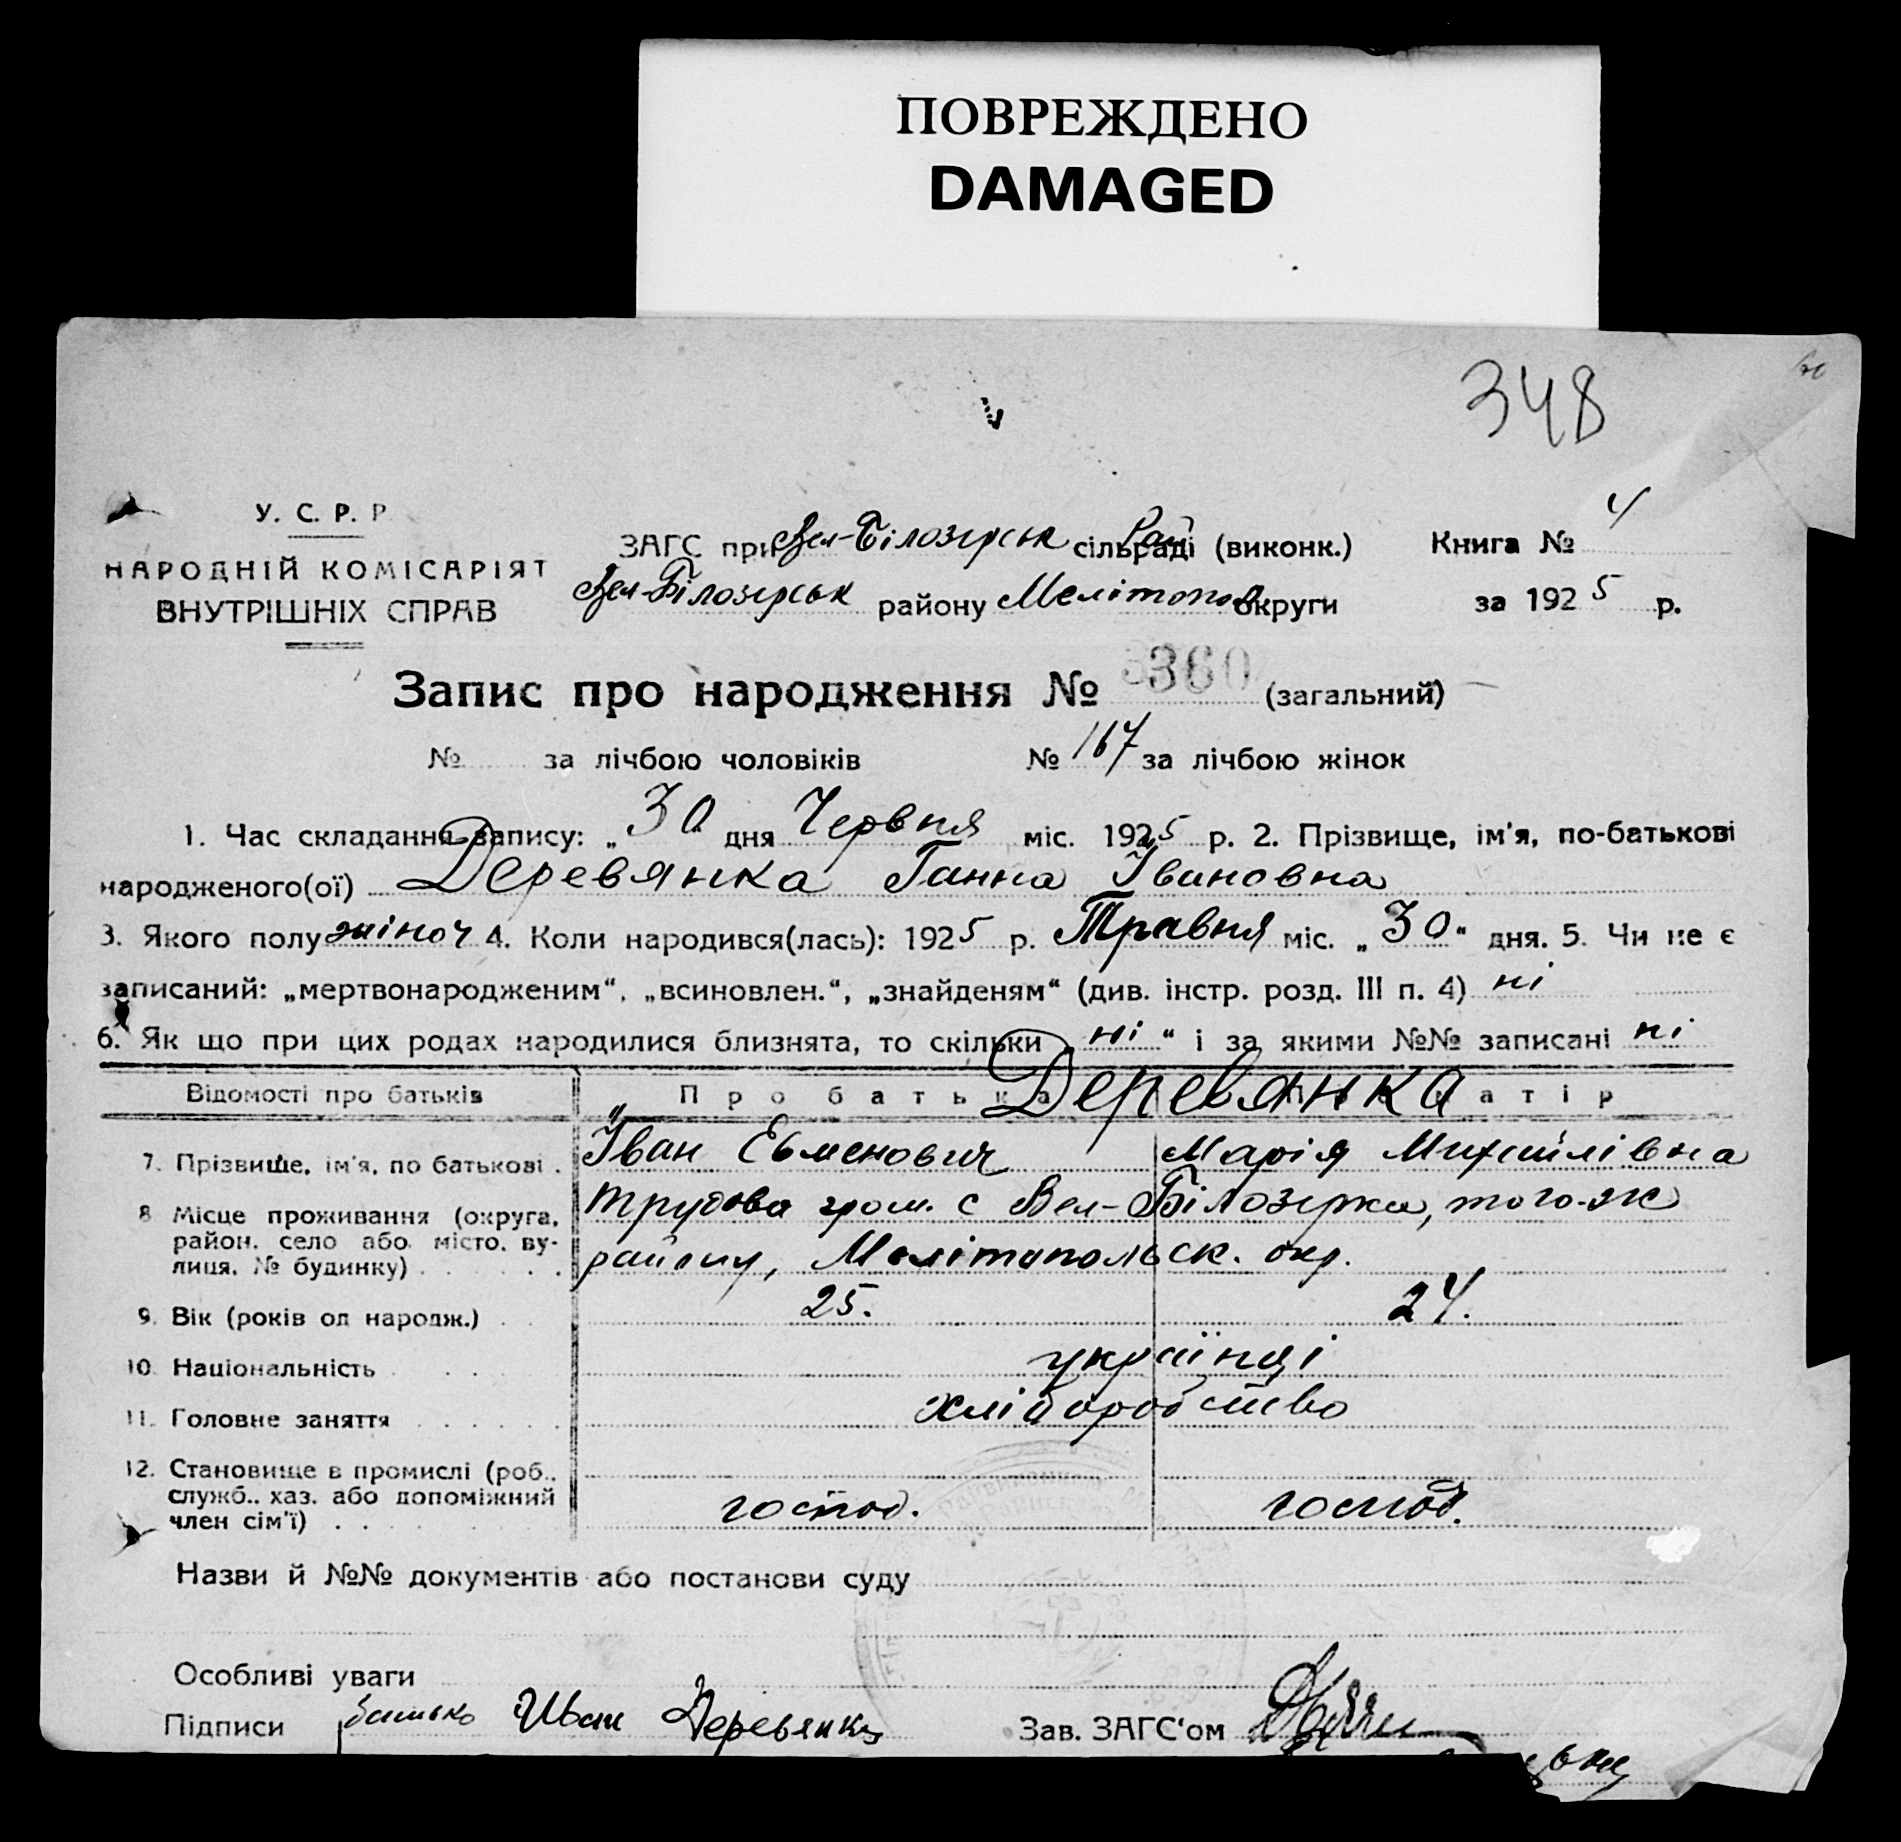 ПОВРЕЖДЕНО
DAMAGED
348
У. С. Р. Р
НАРОДНІЙ КОМІСАРІЯТ
ВНУТРІШНІХ СПРАВ
ЗАГС при Вел-Білозирськ сільраді Рай (виконк.)
Вел-Білозирськ району Мелітопол округи
Книга № 4
за 1925 р.
Запис про народження № 360 (загальний)
№ за лічбою чоловіків № 167 за лічбою жінок
1. Час складання запису: „30 дня Червня міс. 1925 р. 2. Прізвище, ім'я, по-батькові
народженого(ої) Деревянка Ганна Івановна
3. Якого полу жіноч 4. Коли народився(лась): 1925 р. Травня міс. „30“ дня. 5. Чи не є
записаний: „мертвонародженим“, „всиновлен.“, „знайденям“ (див. інстр. розд. III п. 4) ні
6. Як що при цих родах народилися близнята, то скільки „ні“ і за якими №№ записані ні
Відомості про батьків Про батька Деревянка матір
7. Прізвище, ім'я, по батькові . Іван Евменович Марія Михайлівна
8 Місце проживання (округа, район, село або місто, вулиця, № будинку) . . . . Трудова гром. с Вел-Білозірка, того-ж
району, Мелітопольск. окр.
9. Вік (років од народж.) . . 25. 24.
10. Національність . . . українці
11. Головне заняття . . . . . хліборобство
12. Становище в промислі (роб., служб., хаз. або допоміжний член сім'ї) . . . . господ. господ.
Назви й №№ документів або постанови суду
Особливі уваги
Підписи батько Иван Деревянка Зав. ЗАГС'ом